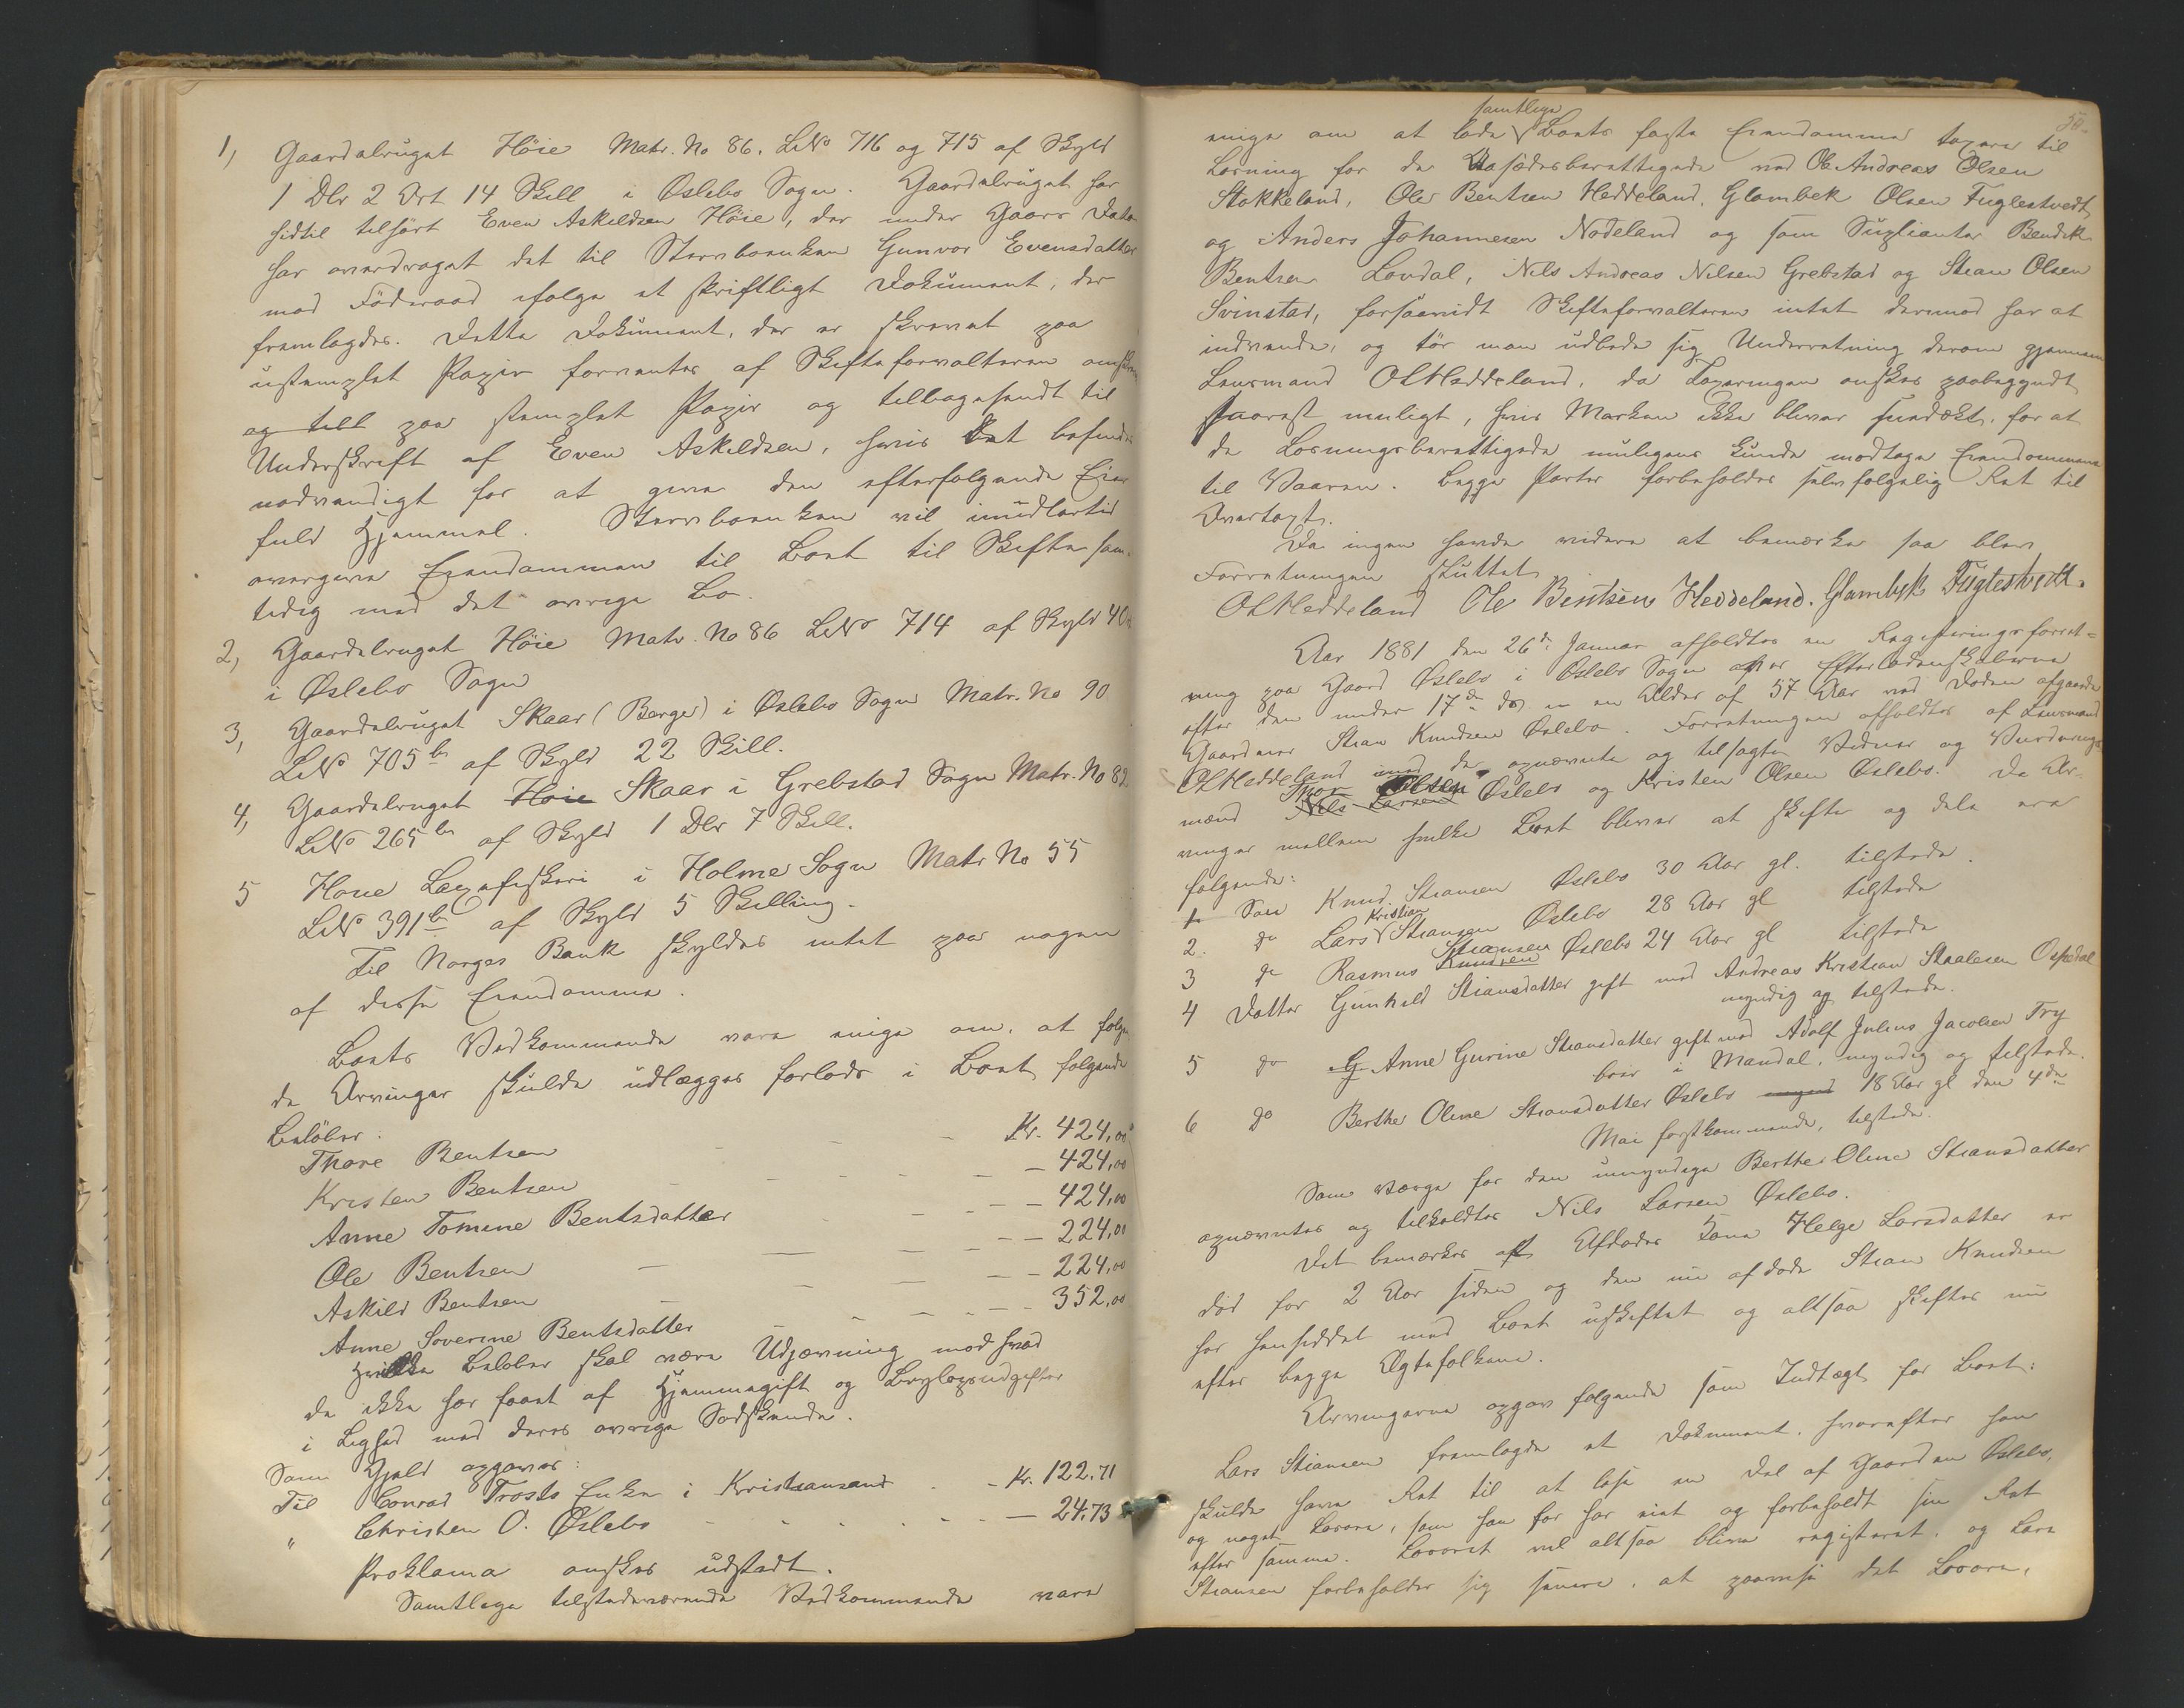 1, Gaardsbruget Höie Matr. No 86. LNo 716 og 715 af Skyld
1 Dlr 2 Ort 14 Skill i Øslebo Sogn. Gaardsbruget har
hidtil tilhört Even Askildsen Höie, der under Gaars Dato
har overdraget det til Stervboenken Gunvor Evensdatter
mod Föderaad ifølge et skriftligt Dokument, der
fremlagdes. Dette Dokument, der er skrevet paa
ustemplet Papir forventes af Skifteforvalteren omskrevet
og till paa stemplet Papir og tilbagesendt til
Underskrift af Even Askildsen, hvis det befindes
nødvendigt for at give den efterfølgende Eier
fuld Hjemmel. Stervboenken vil imidlertid
overgive Eiendommen til Boet til Skifte sam-
tidig med det øvrige Bo.
2, Gaardsbruget Höie Matr. No 86 LNo 714 af Skyld 40
i Øslebo Sogn
3, Gaardsbruget Skaar (Berge) i Øslebo Sogn Matr. No 90
LNo 705 b af Skyld 22 Skill.
4, Gaardsbruget Höie Skaar i Grebstad Sogn Matr. No 82
LNo 265 b af Skyld 1 Dlr 7 Skill.
5 Höie Laxefiskeri i Holme Sogn Matr No 55
LNo 391 b af Skyld 5 Skilling.
Til Norges Bank skyldes intet paa nogen
af disse Eiendomme.
Boets Vedkommende vare enige om, at følgen
de Arvinger skulde udlægges forlods i Boet følgende
Beløber:
Thore Bentsen Kr. 424,00
Kristen Bentsen - 424,00
Anne Tomine Bentsdatter - 424,00
Ole Bentsen - 224,00
Askild Bentsen - 224,00
Anne Severine Bentsdatter - 352,00
hvilke Beløber skal være Udjævning mod hvad
de ikke har faaet af Hjemmegift og Bryllupsudgifter
i Lighed med deres øvrige Sødskende.
Som Gjeld opgaves:
Til Conrad Trosts Enke i Kristiansand - Kr. 122.71
" Christen O. Øslebo - 24.73
Proklama ønskes udstedt.
Samtlige tilstedeværende Vedkommende vare
50.
samtlige
enige om at lade Boets faste Eiendomme taxere til
Løsning for de Aasædesberettigede ved Ole Andreas Olsen
Stokkeland, Ole Bentsen Heddeland, Glambek Olsen Fuglestvedt
og Anders Johannesen Nödeland og som Supleanter Bendik
Bentsen Løvdal, Nils Andreas Nilsen Grebstad og Stian Olsen
Svinstad, forsaavidt Skifteforvalteren intet dermod har at
indvende, og tör man udbede sig Underretning derom gjennem
Lensmand OAHeddeland, da Taxeringen ønskes paabegyndt
snarest muligt, hvis Marken ikke bliver snedækt, for at
de Løsningsberettigede muligens kunde modtage Eiendommene
til Vaaren. Begge Parter forbeholdes selvfølgelig Ret til
Overtaxt.
Da ingen havde videre at bemærke saa blev
Forretningen sluttet
OAHeddeland Ole Bentsen Heddeland. Glambek Fuglestvedt.
Aar 1881 den 26de Januar afholdtes en Registreringsforret-
ning paa Gaard Øslebo i Øslebo Sogn over Efterladenskaberne
efter den under 17de ds. i en Alder af 57 Aar ved Døden afgaaede
Gaardmand Stian Knudsen Øslebo. Forretningen afholdtes af Lensmand
OAHeddeland med de opnævnte og tilsagte Vidner og Vurderings-
Olsen
mænd Nils Larsen Øslebo og Kristen Olsen Øslebo. De Ar-
vinger mellem hvilke Boet bliver at skifte og dele ere
følgende:
1. Søn Knud Stiansen Øslebo 30 Aar gl. tilstede.
Kristian
2. do Lars Stiansen Øslebo 28 Aar gl tilstede
Stiansen
3 do Rasmus Knudsen Øslebo 24 Aar gl tilstede
4 Datter Gunhild Stiansdatter gift med Andreas Kristian Staalesen Ospedal
myndig og tilstede.
5 do G. Anne Gurine Stiansdatter gift med Adolf Julius Jacobsen Try
boer i Mandal, myndig og tilstede.
6 do Berthe Oline Stiansdatter Øslebo 18 Aar gl den 4de
Mai førstkommende, tilstede.
Som Værge for den umyndige Berthe Oline Stiansdatter
opnævntes og tilkaldtes Nils Larsen Øslebo.
Det bemærkes at Afdødes Kone Helge Larsdatter er
död for 2 Aar siden og den nu afdøde Stian Knudsen
har hensiddet med Boet uskiftet og altsaa skiftes nu
efter begge Ægtefolkene.
Arvingerne opgav følgende som Indtægt for Boet:
Lars Stiansen fremlagde et Dokument, hvorefter han
skulde have Ret til at løse en Del af Gaarden Øslebo,
og noget Løsøre, som han før har eiet og forbeholdt sin Ret
efter samme. Løsøret vil altsaa blive registeret, og Lars
Stiansen forbeholder sig senere, at paavise det Løsøre,